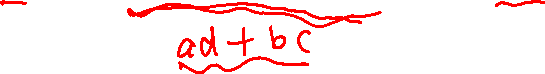 ad + bc